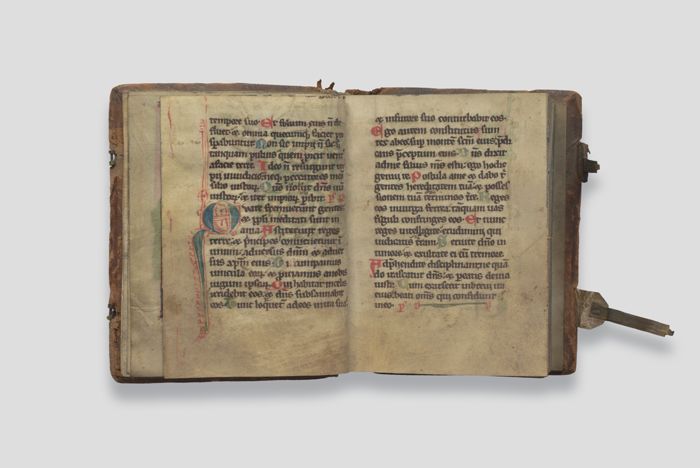 tempore suo Et folium eius n̄ de
fluet ⁊ omnia quecumq; faciet
sp̄abuntur Non sic impii n̄ sic
tanquam puluis quem proicit uent᾽
a facie terre Ideo n̄ resurgunt im
pii in iudicio neq; peccatores in
silio iustoꝝ Qm̄ nouit dn̄s uiā
iustoꝝ ⁊ iter impioꝝ pibit
Quare fremuerunt gentes
⁊ ppl̄i meditati sunt in
ania Astiterunt reges
terre ⁊ principes conuenerunt ī
unum aduersus dn̄m ⁊ aduer
sus xp̄m eius Dirumpamus
uincula eoꝝ ⁊ proiciamus a nobis
iugum ipsoꝝ Qui habitat in celis
irridebit eos ⁊ dn̄s subsannabit
eos Tunc loquet᾽ ad eos in ira sua
⁊ in furore suo conturbabit eos
Ego autem constitutus sum
rex ab eo sup montē scm̄ eius p̄di
cans p̄ceptum eius Dn̄s dixit
ad me filius m̄s es tu ego hodie
genui te Postula a me ⁊ dabo t̄
gentes hereditatem tuā ⁊ posses
sionem tuā terminos tr̄e Reges
eos in uirga ferrea tāquam uas
figuli confringes eos Et nunc
reges intelligite erudimini qui
iudicatis terram Seruite dn̄o in
timore ⁊ exultate ei cū tremore
Adphendite disciplinam ne quā
do irascatur dn̄s ⁊ peatis de uia
iusta Cum exarserit in breui ira
eius beati om̄s qui confidunt
in eo